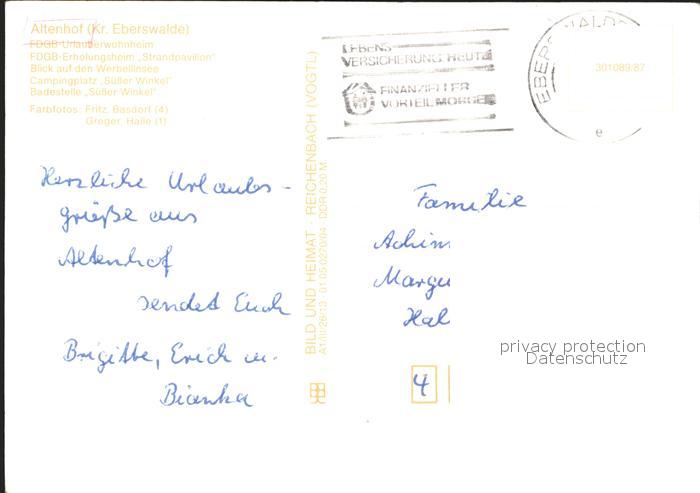 Altenhof (Kr. Eberswalde)
FDGB-Urlauberwohnheim
FDGB-Erholungsheim „Strandpavillon"
Blick auf den Werbellinsee
Campingplatz „Süßer Winkel"
Badestelle „Süßer Winkel"
Farbfotos: Fritz, Basdorf (4)
Greger, Halle (1)
LEBENS-
VERSICHERUNG HEUTE
FINANZIELLER
VORTEIL MORGEN
EBERSWALDE
e
BILD UND HEIMAT · REICHENBACH (VOGTL)
DDR 0,20 M
301089/87
Herzliche Urlaubs-
grüße aus
Altenhof
sendet Euch
Brigitte, Erich u.
Bianka
Familie
Achim
Margu
Hal
4
privacy protection
Datenschutz